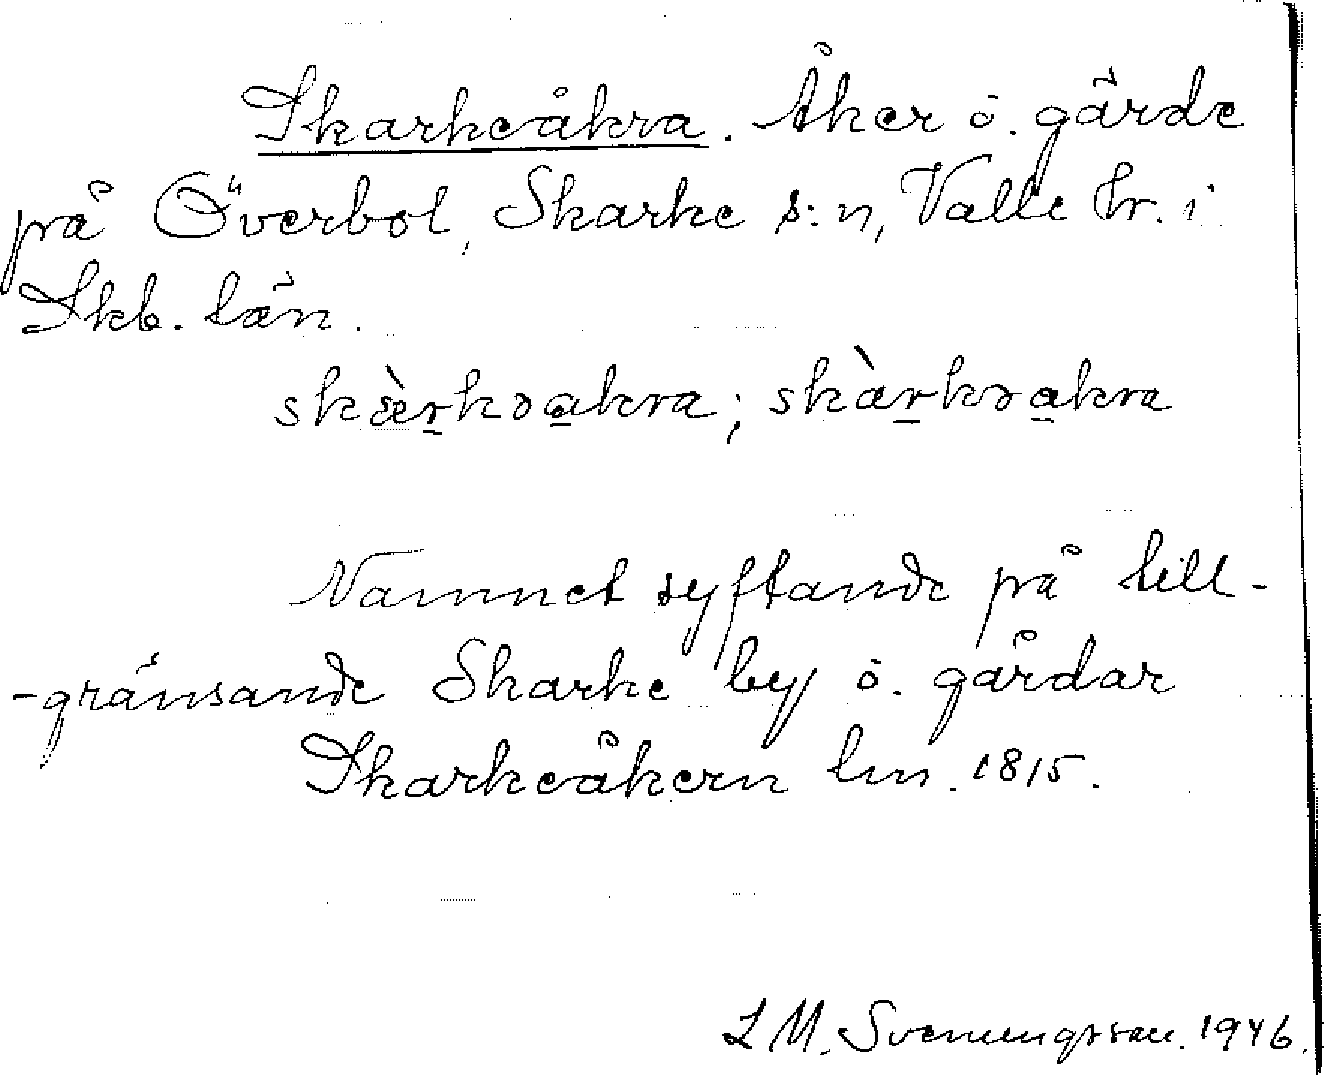 Skarkeåkra. Åker o. gärde
på Överbol, Skarke s:n, Valle hr. i
Skb. län.
skæ̀r̠kɔa̠kra; skàr̠kɔa̠kra
Namnet syftande på till-
-gränsande Skarke by o. gårdar
Skarkeåkern lm. 1815.
L M. Svenungsson. 1946.